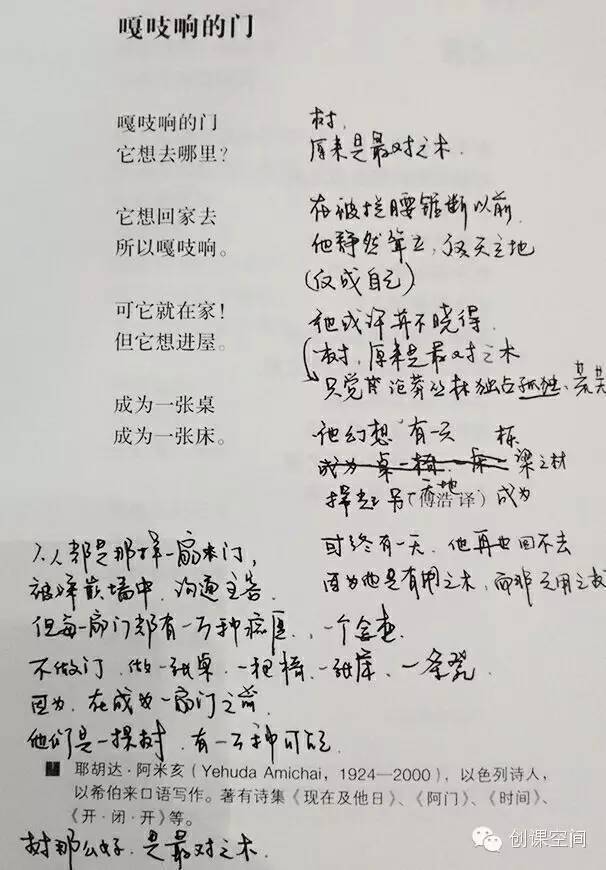 嘎吱响的门
嘎吱响的门
它想去哪里?
它想回家去
所以嘎吱响。
可它就在家!
但它想进屋。
成为一张桌
成为一张床。
(傅浩 译)
树,
原来是最对之木.
在被拦腰锯断以前.
他静然耸立,
(仅成自己)
他或许并不晓得.
树,原来是最对之木
只觉 莽丛林独占孤独、
他幻想 有一天 栋
成为桌 椅 床 梁之材
成为
可终有一天.他再也回不去
因为他是有用之木,而非无用之
人都是那样一扇木门,
被 墙中.沟通主客.
但每一扇门都有一万种 ,一个
不做门.做一张桌.一把椅.一张床、一条凳
因为.在成为一扇门之前.
他们是一棵树.有一万种可能.
耶胡达·阿米亥(Yehuda Amichai,1924—2000),以色列诗人,
以希伯来口语写作。著有诗集《现在及他日》、《阿门》、《时间》、
《开·闭·开》等。
树那么好.是最对之木.
创课空间